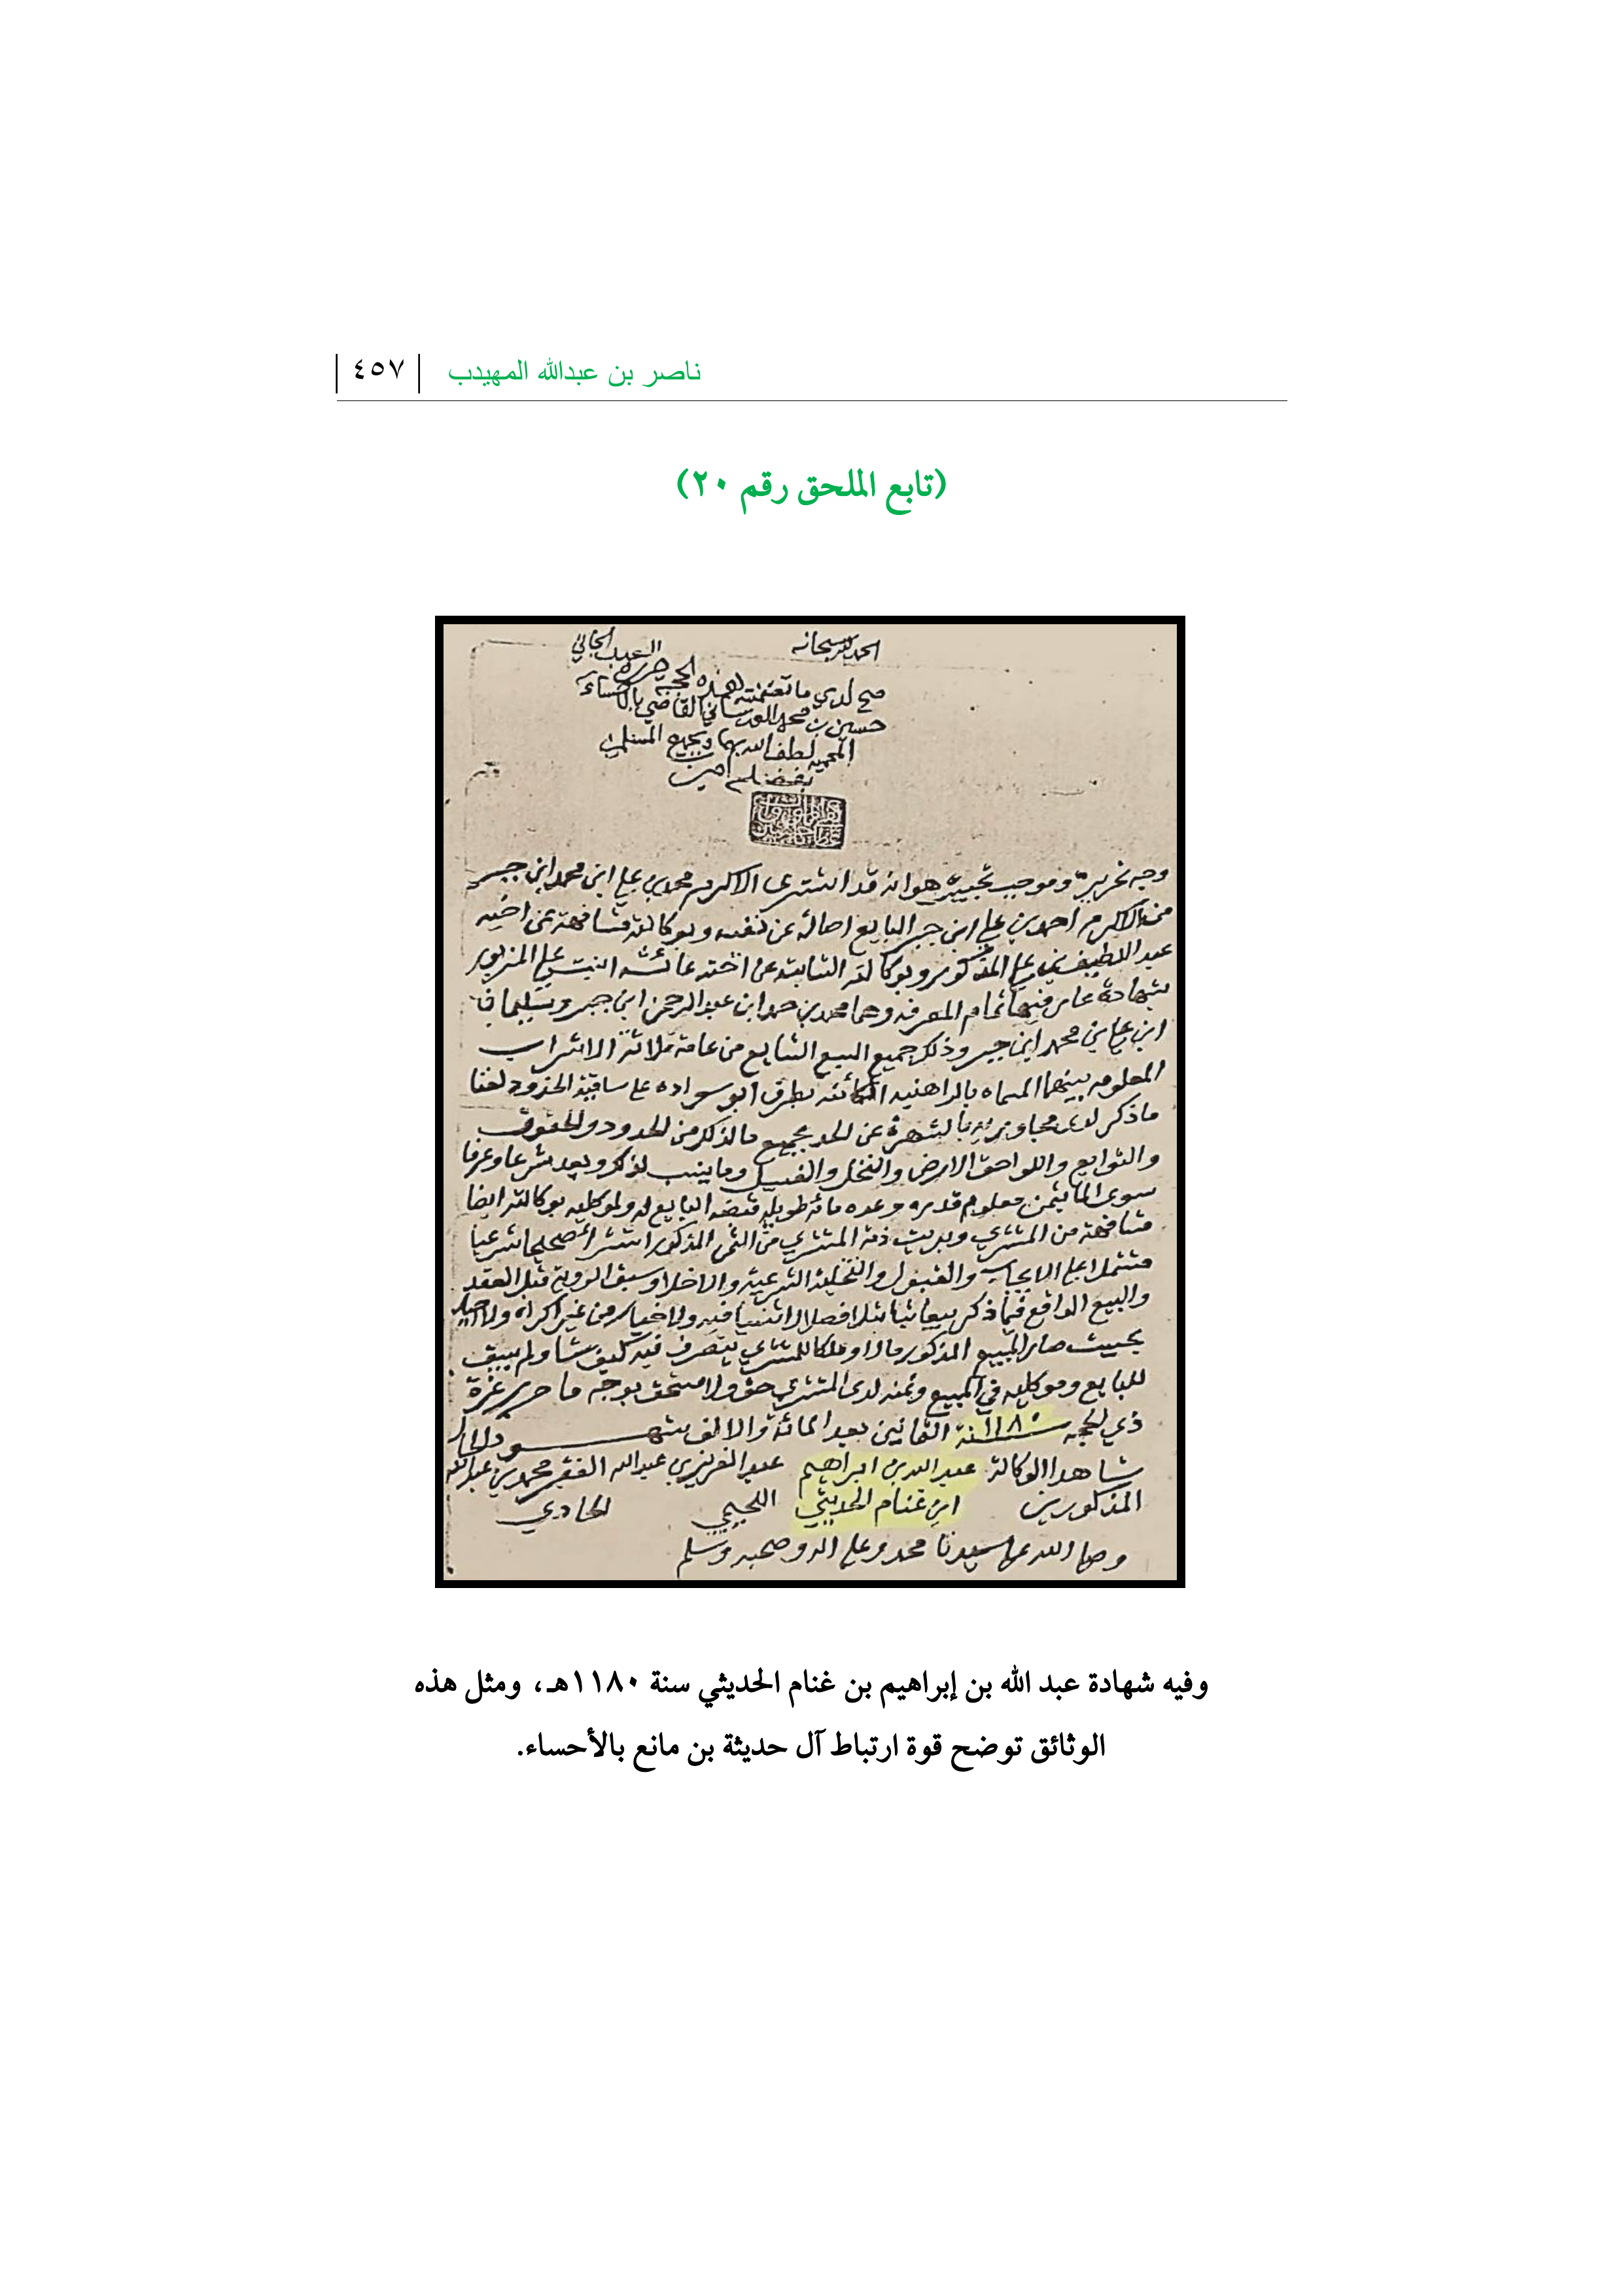 ناصر بن عبدالله المهيدب | ٤٥٧ |
(تابع الملحق رقم ٢٠)
الحمد لله سبحانه
صح لدي ما تضمنته هذه الحجة حرره العبد الجاني
حسين بن محمد القاضي بالاحساء
المحمية لطف الله بها وبجميع المسلمين
بفضله امين
وجه تحريره وموجب تحبيره هو انه قد اشترى الاكرم محمد بن علي ابن محمد ابن جبر
من الاكرم احمد بن علي ابن جبر البايع اصالة عن نفسه وبوكالته مشافهة عن اخيه
عبد اللطيف بن علي المذكور وبوكالته الثابتة عن اخته عائشه البنت علي المزبور
بشهادة عارفيها تمام المعرفه وهما محمد بن حمد ابن عبد الرحمن ابن جبر وسليمان
ابن علي بن محمد ابن جبر وذلك جميع البيع الشايع من عامة ثلاثة الاشراب
المعلومه بينهما المسماه بالراهنيه الكائنه بطرف ابو سواده على ساقية الحذود
ما ذكر لدى مجاوريه بالشهرة عن الحد بجميع ما لذلك من الحدود والحقوق
والتوابع واللواحق الارض والنخل والفسيل وما ينسب لذلك ويعد شرعا وعرفا
سوى الما بثمن معلوم قدره وعده مائة طويله قبضه البايع له ولموكليه بوكالته ايضا
مشافهة من المشتري وبريت ذمة المشتري من الثمن المذكور اشتراء صحيحا شرعيا
مشتملا على الايجاب والقبول والتخلية الشرعيه والاخلا وسبق الروية قبل العقد
والبيع الواقع فيما ذكر بيعا باتا بتلا فصلا لا ثنيا فيه ولا خيار من غير اكراه ولا اجبار
بحيث صار المبيع المذكور مالا وملكا للمشتري يتصرف فيه كيف شا ولم يبق
للبايع وموكليه في المبيع وثمنه لدى المشتري حق ولا مستحق بوجه ما حرر غرة
ذي الحجه سنة ١١٨٠ الثمانين بعد المائة والالف شهود الحال
شاهدا الوكالة عبد الله بن ابراهيم عبد العزيز بن عبد الله الفقير محمد بن عبد الله
المذكورين ابن غنام الحديثي
وصلى الله على سيدنا محمد وعلى اله وصحبه وسلم
وفيه شهادة عبد الله بن إبراهيم بن غنام الحديثي سنة ١١٨٠هـ، ومثل هذه
الوثائق توضح قوة ارتباط آل حديثة بن مانع بالأحساء.